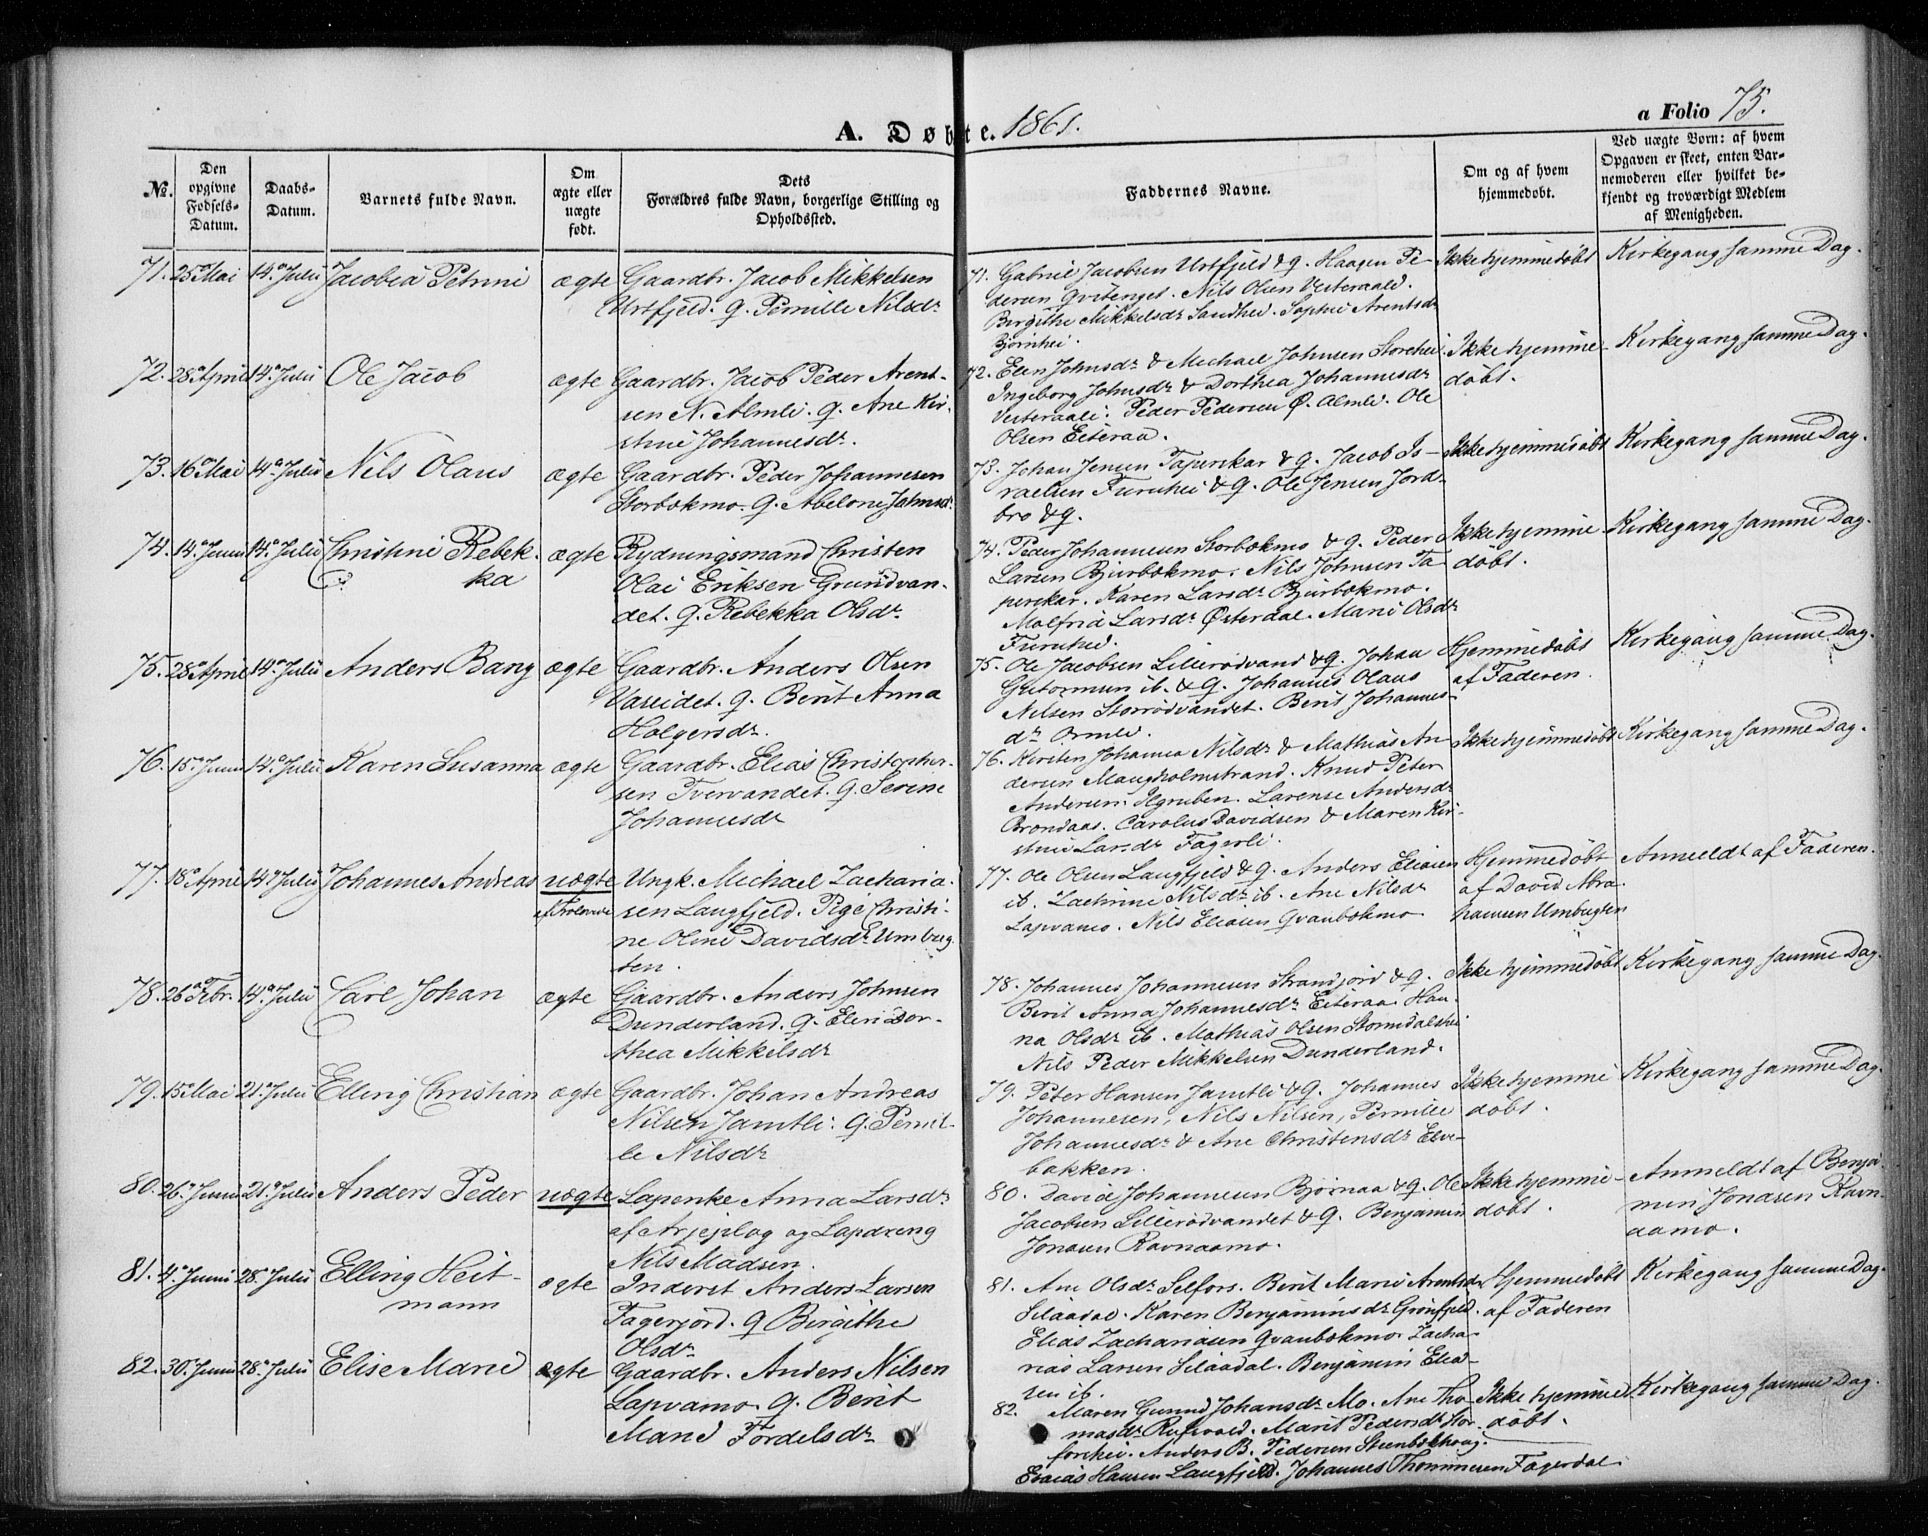 A. Døbte. 1861.
a Folio 75.
No.
Den opgivne Fødsels-Datum.
Daabs-Datum.
Barnets fulde Navn.
Om ægte eller uægte født.
Dets Forældres fulde Navn, borgerlige Stilling og Opholdssted.
Faddernes Navne.
Om og af hvem hjemmedøbt.
Ved uægte Børn: af hvem Opgaven er skeet, enten Barnemoderen eller hvilket bekjendt og troværdigt Medlem af Menigheden.
71. 25 Mai 14 Julii Jacobea Petrine ægte Gaardbr. Jacob Mikkelsen
Urtfjeld. Q. Pernille Nilsdr
71. Gabriel Jacobsen Urtfjeld & Q. Haagen Pe-
dersen Qvitenget. Nils Olsen Vesteraali.
Birgithe Mikkelsdr Sandhei. Sophie Arentsdr
Bjørnhei.
Ikke hjemmedøbt
Kirkegang samme Dag.
72. 28 April 14 Julii Ole Jacob ægte Gaardbr. Jacob Peder Arent-
sen N. Almli. Q. Ane Kir-
stine Johannesdr.
72. Elen Johnsdr & Michael Johnsen Storehei
Ingeborg Johnsdr & Dorthea Johannesdr
Vesteraali. Peder Pedersen Ø. Almli. Ole
Olsen Eiteraa.
Ikke hjemme
døbt.
Kirkegang samme Dag.
73. 16 Mai 14 Julii Nils Olaus ægte Gaardbr. Peder Johannesen
Storbokmo. Q. Abelone Johnsdr.
73. Johan Jensen Taperskar & Q. Jacob Is-
raelsen Furuhei & Q. Ole Jensen Jord-
bro & Q.
Ikke hjemmedøbt
Kirkegang samme Dag.
74. 14 Junii 14 Julii Christine Rebek-
ka ægte Rydningsmand Christen
Olai Eriksen Grundvan-
det. Q. Rebekka Olsdr.
74. Peder Johannesen Storbokmo & Q. Peder
Larsen Bjurbokmo. Nils Johnsen Ta
perskar. Karen Larsdr Bjurbokmo.
Malfrid Larsdr Østerdal. Marie Olsdr
Furuhei.
Ikke hjemme
døbt.
Kirkegang samme Dag.
75. 28 April 14 Julii Anders Bang ægte Gaardbr. Anders Olsen
Vaseidet. Q. Berit Anna
Holgersdr.
75. Ole Jacobsen Lillerødvand & Q. Johan
ib. & Q. Johannes Olaus
Nilsen Storrødvandet. Berit Johannes-
dr
Hjemmedøbt
af Faderen.
Kirkegang samme Dag.
76. 15 Junii 14 Julii Karen Susanna ægte Gaardbr. Elias Christopher-
sen Tvervandet. Q. Serine
Johannesdr
76. Kirsten Johanna Nilsdr & Mathias An
dersen Maugholmstrand. Knud Peter
Andersen Ilgruben. Larense Andersdr
Brondaas. Carolus Davidsen & Maren Kir-
stine Larsdr Fagerli.
Ikke hjemmedøbt
Kirkegang samme Dag.
77. 18 April 14 Julii Johannes Andreas uægte Ungk. Michael Zacharia-
sen Langfjeld. Pige Christi-
ne Oline Davidsdr Umbug-
ten.
77. Ole Olsen Langfjeld & Q. Anders Eliasen
ib. Zachrine Nilsdr ib. Ane Nilsdr
Lapvamo. Nils Eliasen Qvanbokmo.
Hjemmedøbt
af David Abra-
hamsen Umbugten
Anmeldt af Faderen.
78. 26 Febr. 14 Julii Carl Johan ægte Gaardbr. Anders Johnsen
Dunderland. Q. Elen Dor-
thea Mikkelsdr
78. Johannes Johannesen Strandjord & Q.
Berit Anna Johannesdr Eiteraa. Han-
na Olsdr ib. Mathias Olsen Stormdalshei
Nils Peder Mikkelsen Dunderland.
Ikke hjemmedøbt
Kirkegang samme Dag.
79. 15 Mai 21 Julii Elling Christian ægte Gaardbr. Johan Andreas
Nilsen Jamtli. Q. Pernil-
le Nilsdr
79. Peter Hansen Jamtli & Q. Johannes
Johannesen, Nils Nilsen, Pernille
Johannesdr & Ane Christensdr Elve-
bakken.
Ikke hjemme
døbt.
Kirkegang samme Dag.
80. 26 Junii 21 Julii Anders Peder uægte Lapenke Anna Larsdr
af Arjeplog og Lapdreng
Nils Madsen.
80. David Johannesen Bjørnaa & Q. Ole
Jacobsen Lillerødvandet & Q. Benjamin
Jonasen Ravnaamo.
Ikke hjemme-
døbt.
Anmeldt af Benja
min Jonasen Ravn-
aamo.
81. 4 Junii 28 Julii Elling Heit-
mann ægte Inderst Anders Larsen
Fagerjord. Q Birgithe
Olsdr
81. Ane Olsdr Selfors. Berit Marie Arentsdr
Silaadal. Karen Benjaminsdr Grønfjeld.
Elias Zachariasen Qvanbokmo. Zacha-
rias Larsen Silaadal. Benjamin Elia-
sen ib.
Hjemmedøbt
af Faderen
Kirkegang samme Dag.
82. 30 Junii 28 Julii Elise Marie ægte Gaardbr. Anders Nilsen
Lapvamo. Q. Berit
Marie Fordelsdr
82. Maren Gurine Johansdr Mo. Ane Tho
masdr Rufsvold. Marit Pedersdr Stor-
forshei. Anders B. Pedersen Steenbekhaug.
Esaias Hansen Langfjeld. Johannes Thommesen Fagerdal.
Ikke hjemme
døbt.
Kirkegang samme Dag.